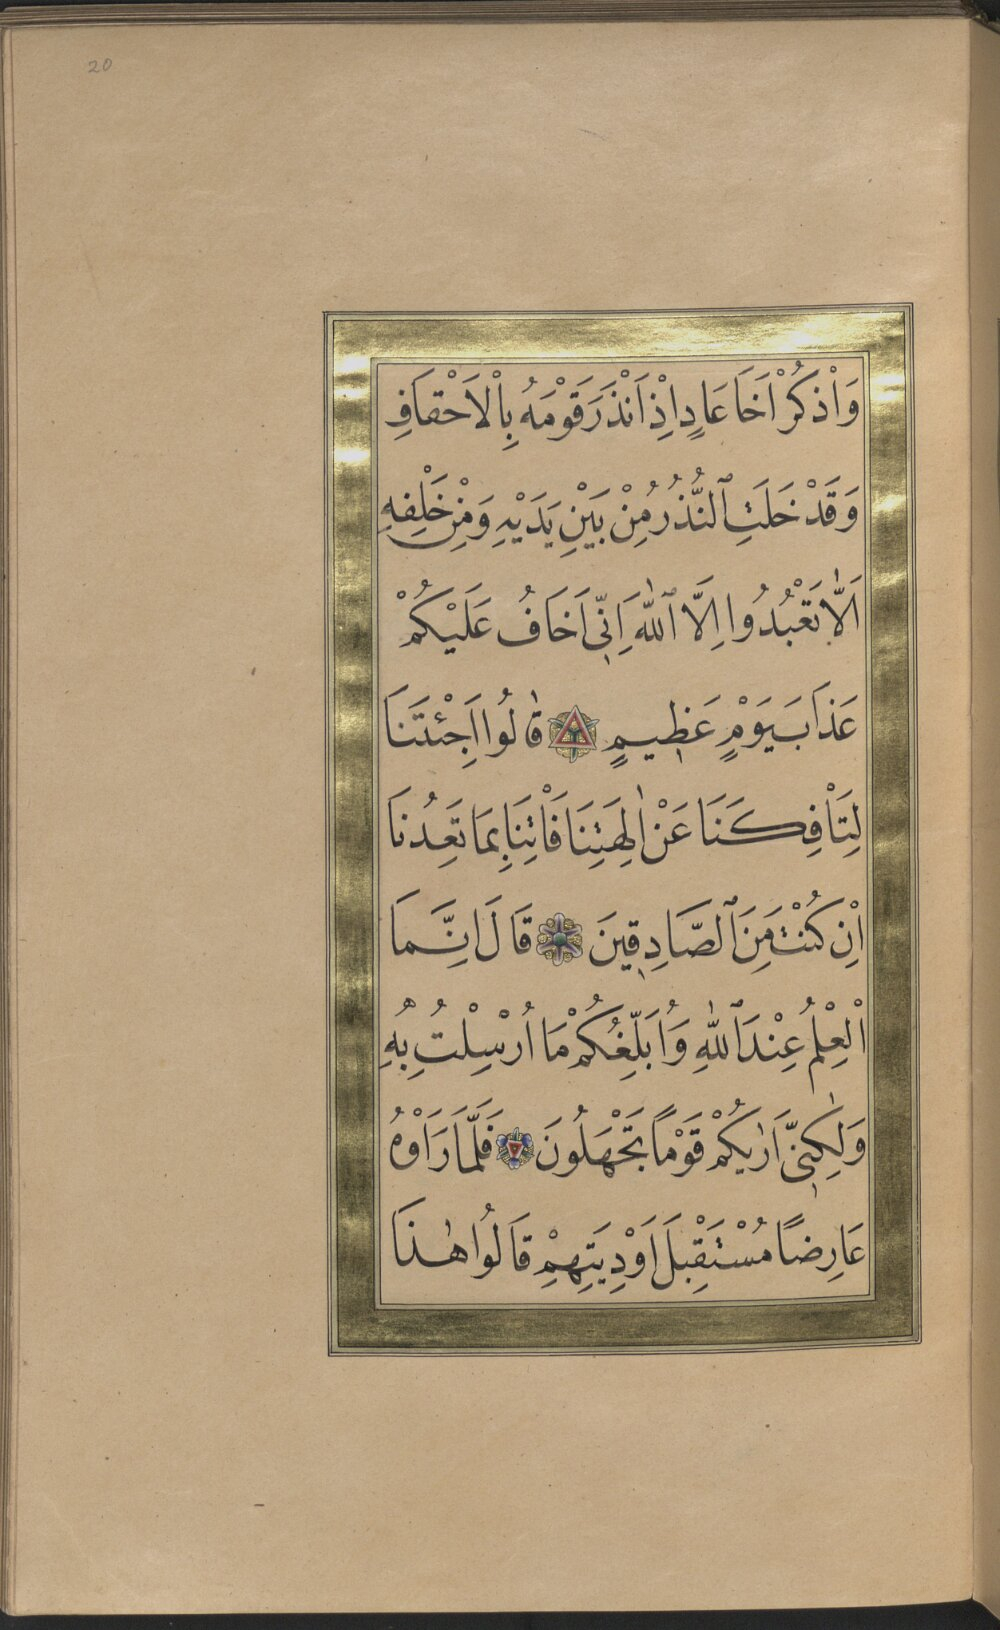 20
وَاذْكُرْ اَخَا عَادٍ اِذْ اَنْذَرَ قَوْمَهُ بِالْاَحْقَافِ
وَقَدْ خَلَتِ ٱلنُّذُرُ مِنْ بَيْنِ يَدَيْهِ وَمِنْ خَلْفِهِ
اَلَّا تَعْبُدُوا اِلَّا ٱللّٰهَ اِنِّى اَخَافُ عَلَيْكُمْ
عَذَابَ يَوْمٍ عَظِيمٍ قٰالُوا اَجِئْتَنَا
لِتَأْفِكَنَا عَنْ اٰلِهَتِنَا فَأْتِنَا بِمَا تَعِدُنَا
اِنْ كُنْتَ مِنَ ٱلصَّادِقِينَ قَالَ اِنَّمَا
الْعِلْمُ عِنْدَ ٱللّٰهِ وَاُبَلِّغُكُمْ مَا اُرْسِلْتُ بِهِ
وَلٰكِنِّى اَرٰيكُمْ قَوْماً تَجْهَلُونَ فَلَمَّا رَاَوْهُ
عَارِضاً مُسْتَقْبِلَ اَوْدِيَتِهِمْ قَالُوا هٰذَا